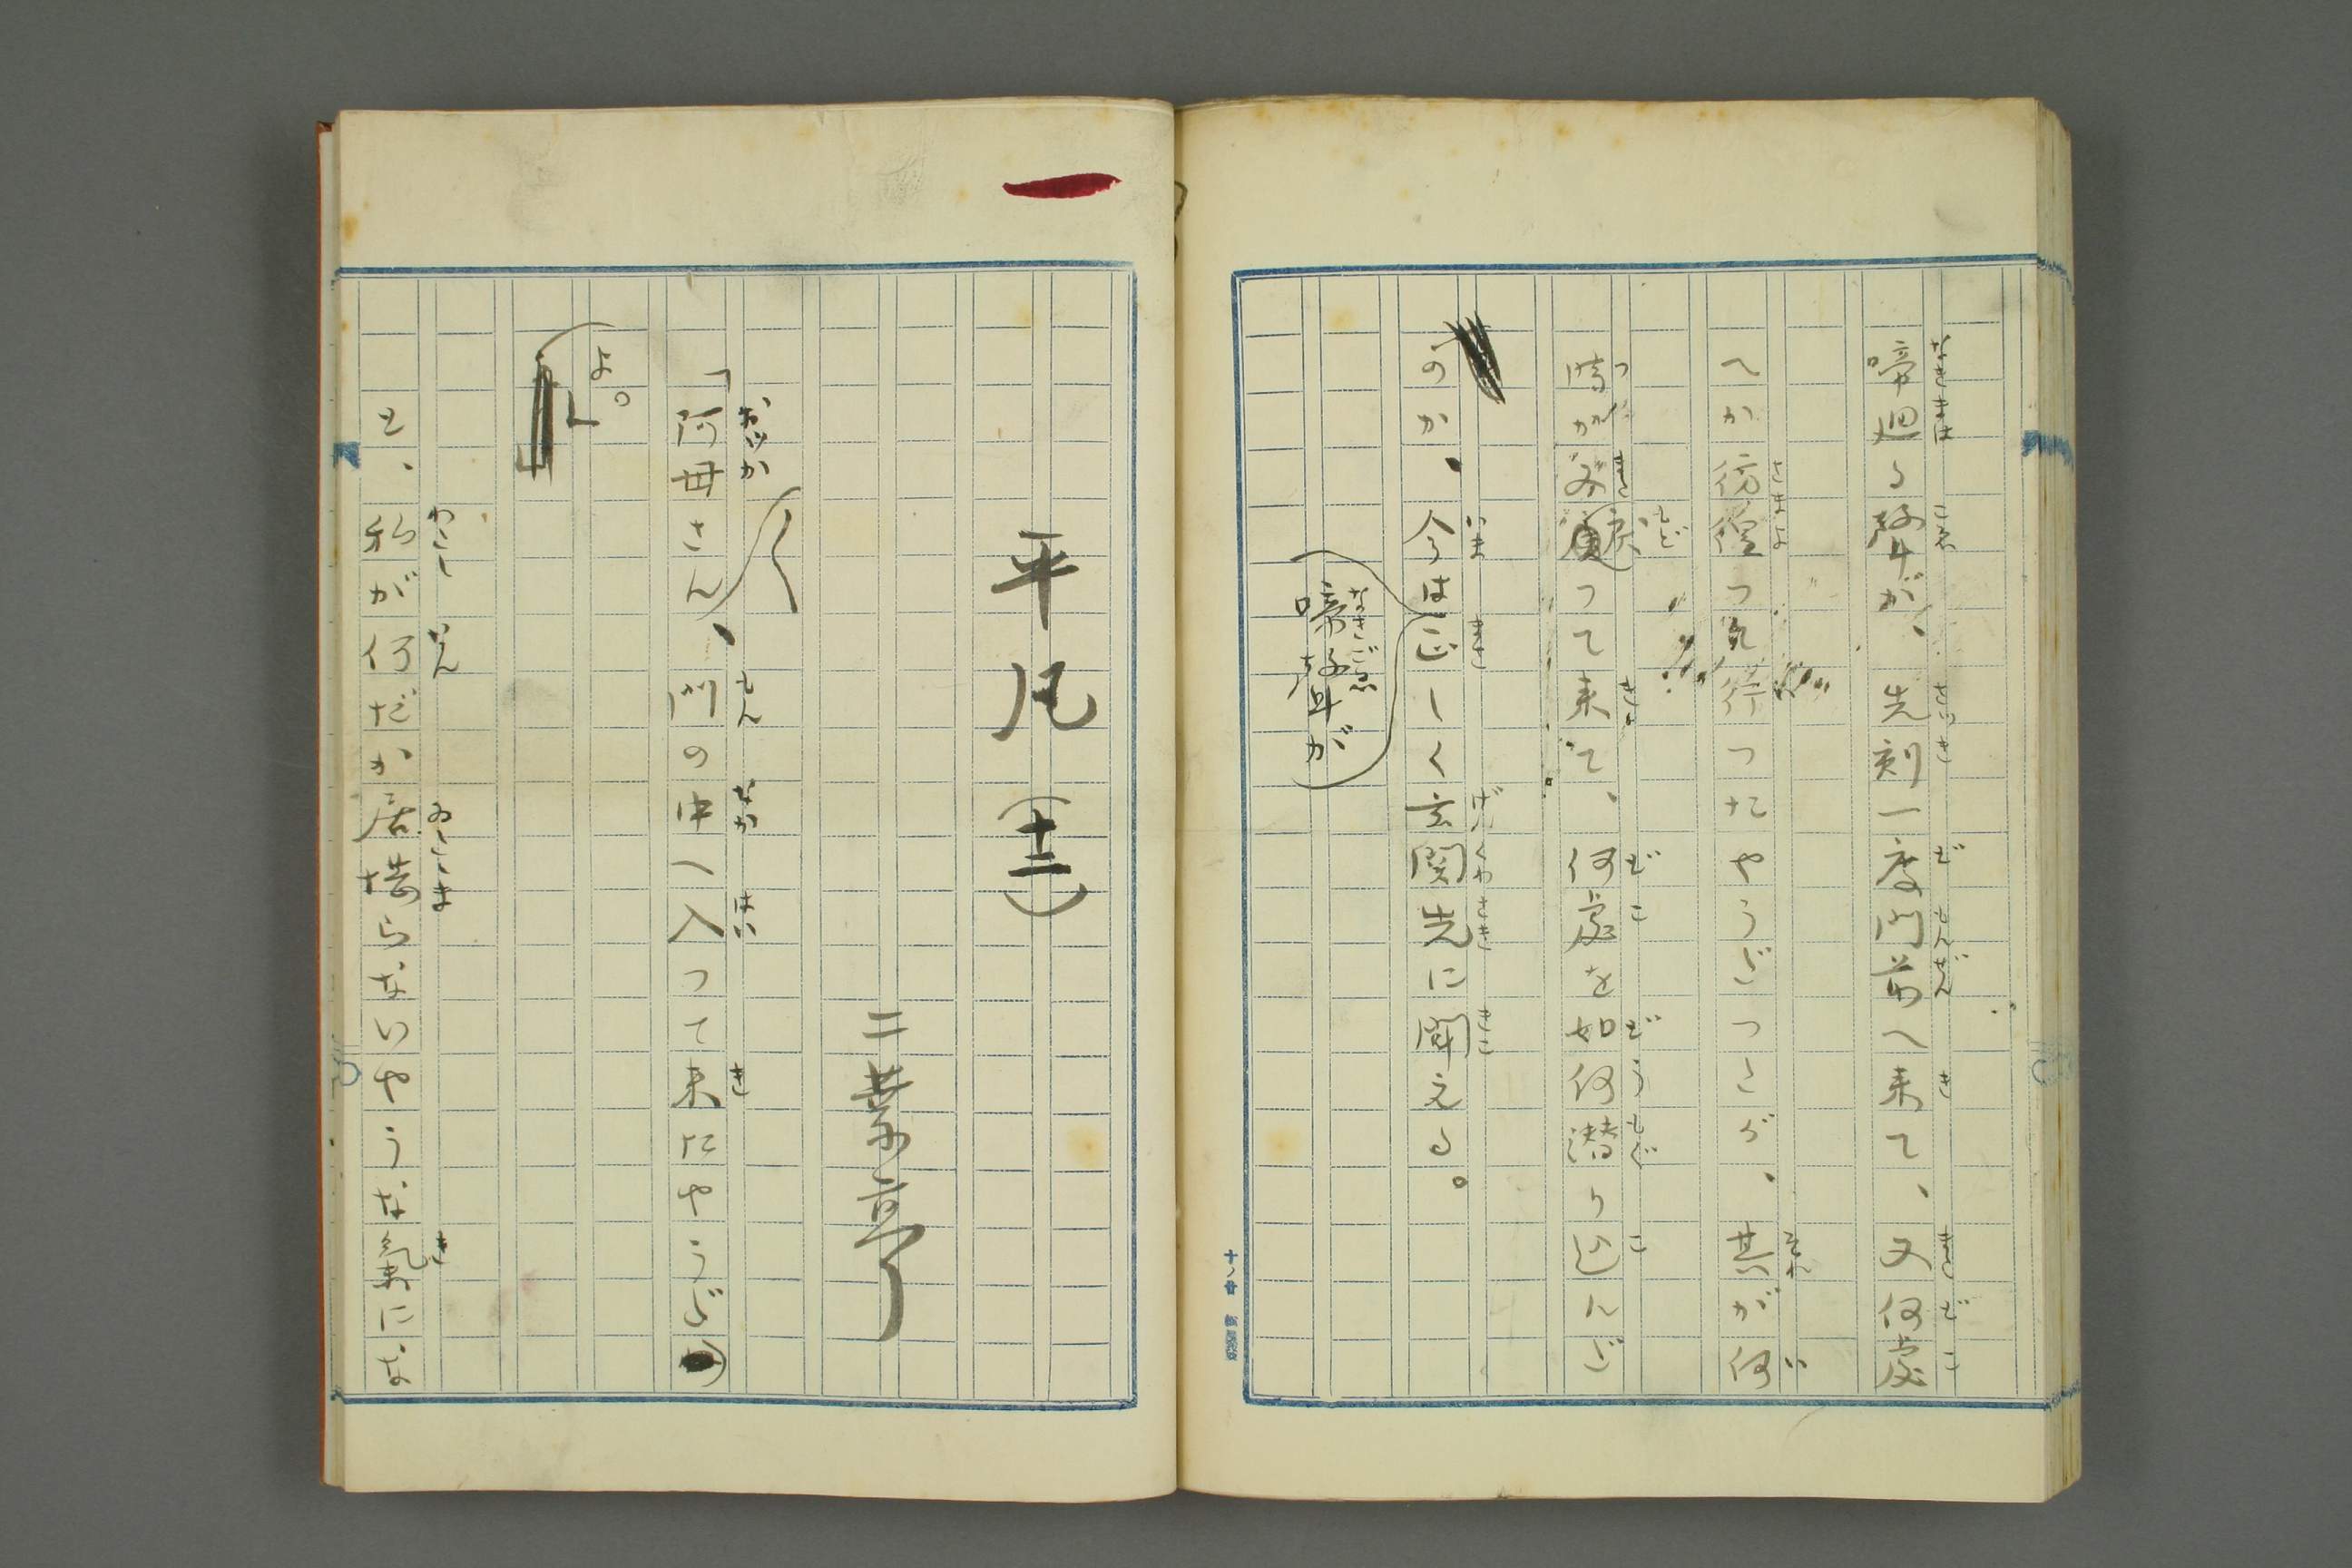 啼廻る聲が、先刻一度門前へ來て、又何處
へか彷徨つて行つたやうだつたが、其が何
時か又戻つて來て、何處を如何潜り込んだ
のか、今は啼聲が正しく玄関先に聞える。
平凡(十二)
二葉亭
「阿母さん〱、門の中へ入つて来たやうだ
よ。」
と、私が何だか居堪らないやうな氣にな